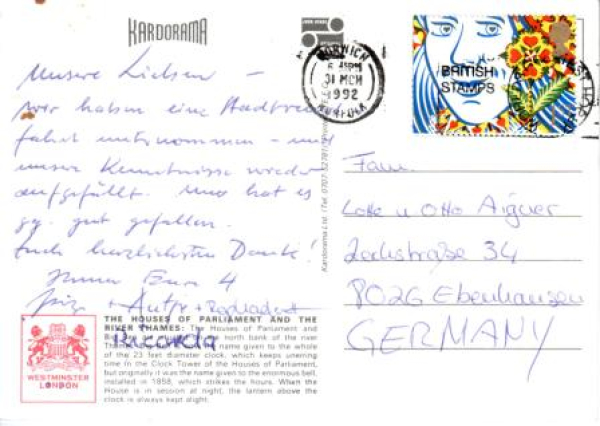 KARDORAMA
Unsere Lieben –
wir haben eine Stadtrund
fahrt unternommen – und
unsere Kenntnisse wieder
aufgefüllt. Uns hat es
gut gefallen.
Euch herzlichsten Dank!
Immer Eure 4
+ Antje +
Ricarda
THE HOUSES OF PARLIAMENT AND THE
RIVER THAMES: The Houses of Parliament and
north bank of the river
name given to the whole
of the 23 feet diameter clock, which keeps unerring
time in the Clock Tower of the Houses of Parliament,
but originally it was the name given to the enormous bell,
installed in 1858, which strikes the hours. When the
House is in session at night, the lantern above the
clock is always kept alight.
WESTMINSTER
LONDON
Kardorama Ltd.
NORWICH
31 MCH
1992
NORFOLK
BRITISH
STAMPS
Fam.
Lotte u Otto Aigner
Zechstraße 34
8026 Ebenhausen
GERMANY